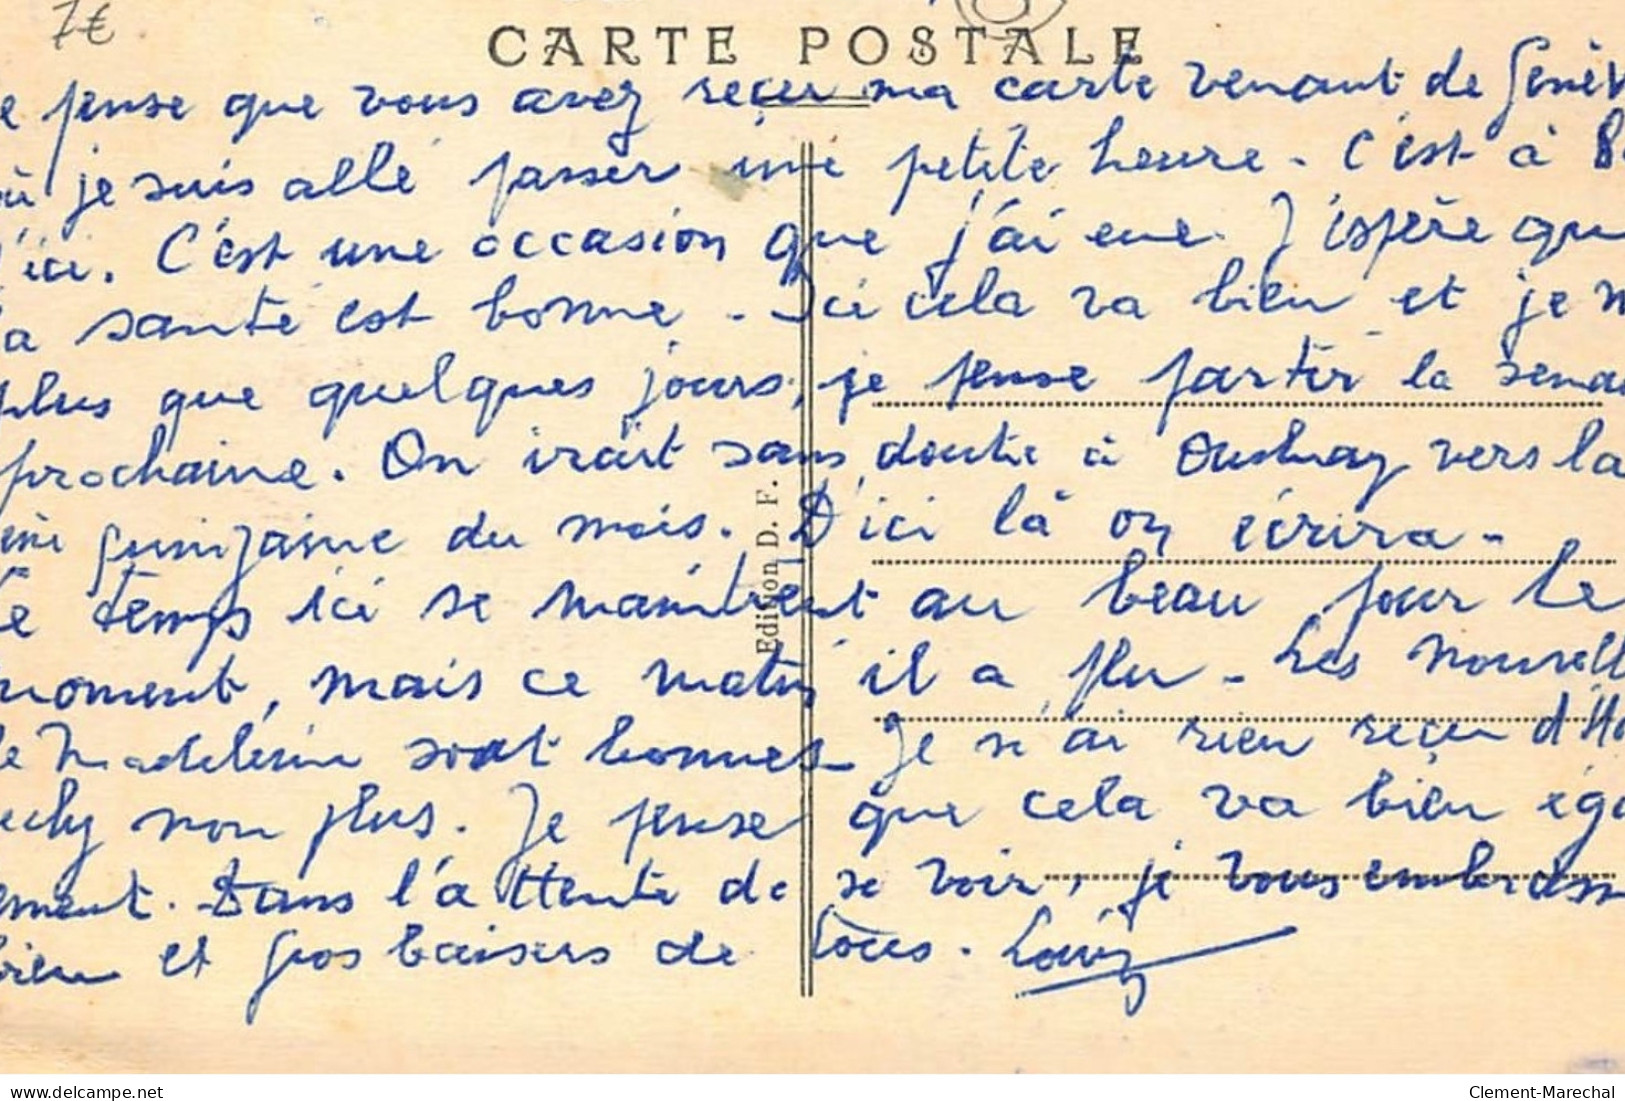 7€
CARTE POSTALE
e pense que vous avez reçu ma carte venant de Genèv
où je suis allé passer une petite heure - C'est à
d'ici. C'est une occasion que j'ai eue. J'espère qu
la santé est bonne - Ici cela va bien et je n
plus que quelques jours, je pense partir la semai
prochaine. On irait sans doute à vers la
quinzaine du mois. D'ici là on écrira -
Le temps ici se maintient au beau pour le
moment, mais ce matin il a plu - Les nouvell
de sont bonnes - Je n'ai rien reçu
non plus. Je pense que cela va bien éga
ement. Dans l'attente de se voir, je vous embrasse
bien et gros baisers de tous. Louis
Edition D. F.
delcampe.net
Clement-Marechal